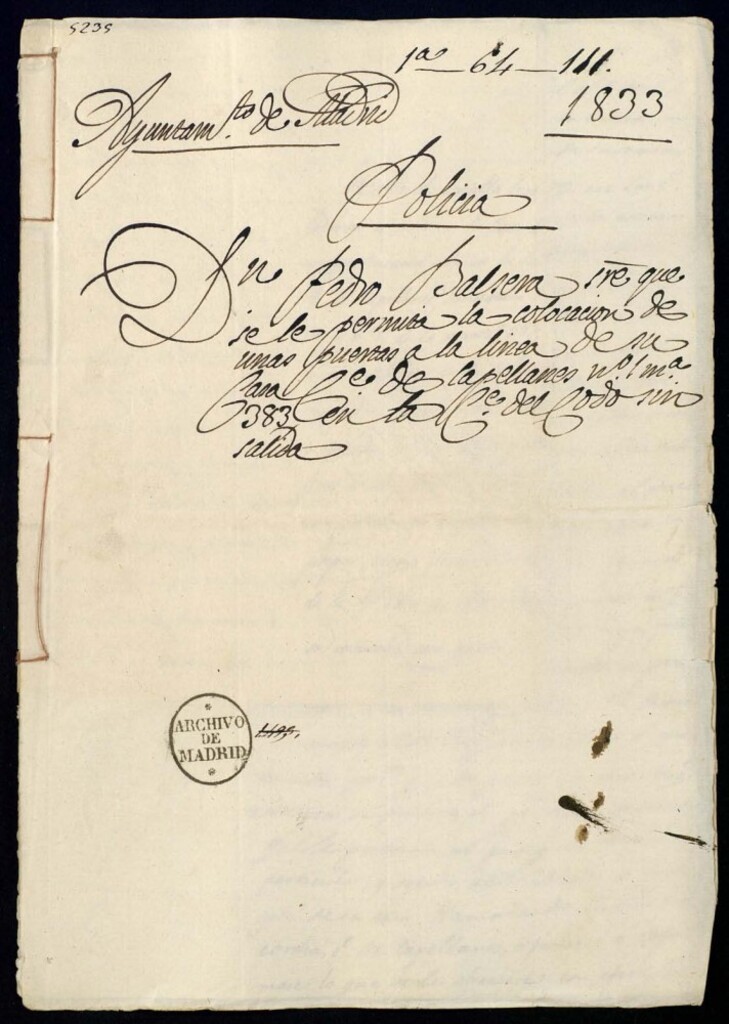 5235
1ª - 64 - 111.
Ayuntam.to de Madrid
1833
Policia
Dn Pedro Balsera sre que
se le permita la colocacion de
unas puertas a la linea de su
Casa Ce. de Capellanes nº. 1 mª.
383 en la Ce. del Codo sin
salida
ARCHIVO
DE
MADRID